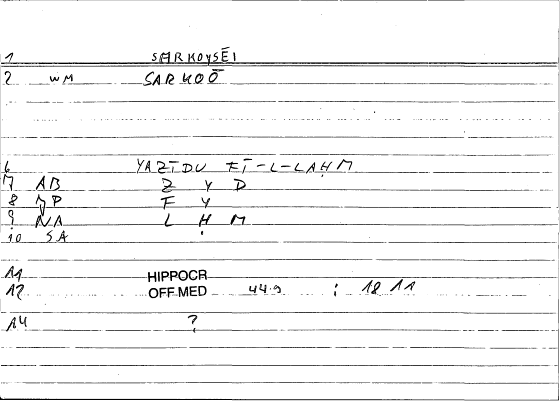 1 SARKOYSĒI
2 WM SARKOŌ
6 YAZĪDU FĪ-L-LAḤM
7 AB Z Y D
8 JP F Y
9 NA L Ḥ M
10 SA
A1 HIPPOCR
A2 OFF.MED 44.9 ; 18 11
A4 ?